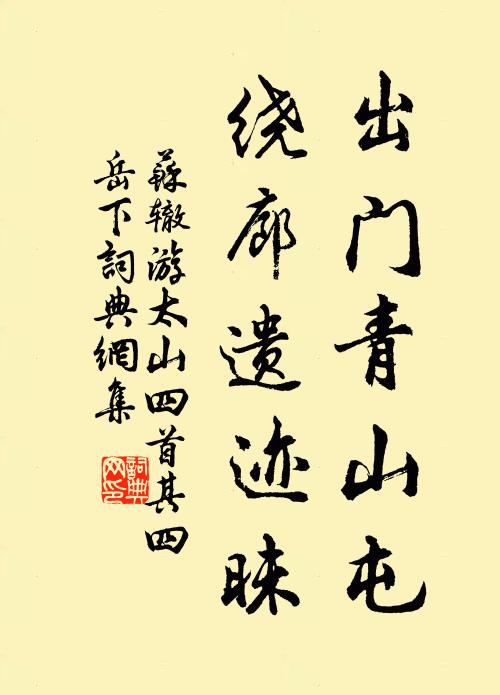 出门青山屯
绕廊遗迹睐
蘇辙游太山四首其四
岳下詞典網集
詞典
网印